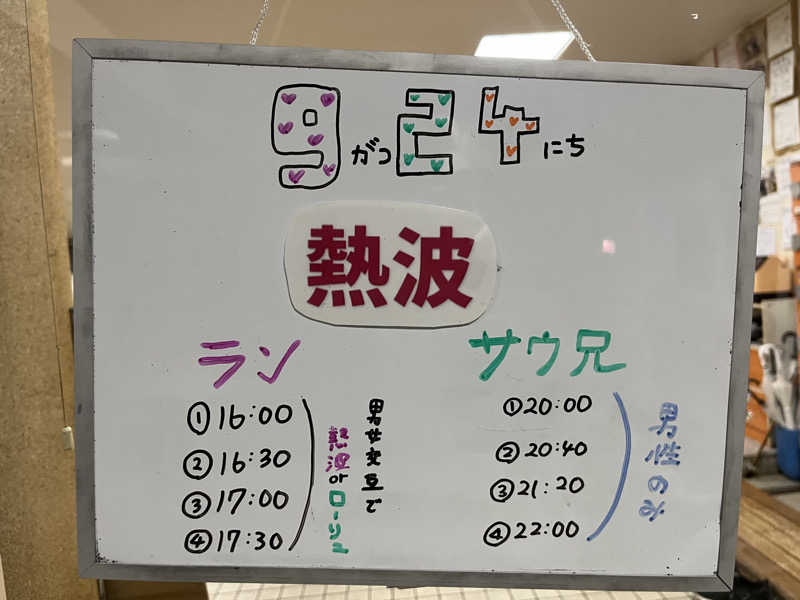 9がつ24にち
熱波
ラン
①16:00
②16:30
③17:00
④17:30
男女交互で
熱波orローリュ
サウ兄
①20:00
②20:40
③21:20
④22:00
男性のみ